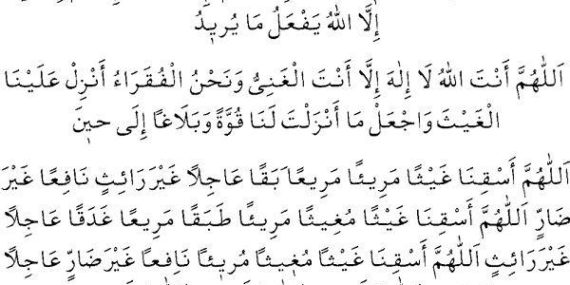 إِلَّا اللهُ يَفْعَلُ مَا يُرِيدُ
اَللّٰهُمَّ أَنْتَ اللهُ لَا إِلٰهَ إِلَّا أَنْتَ الْغَنِىُّ وَنَحْنُ الْفُقَرَاءُ أَنْزِلْ عَلَيْنَا
الْغَيْثَ وَاجْعَلْ مَا أَنْزَلْتَ لَنَا قُوَّةً وَبَلَاغًا إِلَى حِينٍ
اَللّٰهُمَّ أَسْقِنَا غَيْثًا مَرِيئًا مَرِيعًا بَقًا عَاجِلًا غَيْرَ رَائِثٍ نَافِعًا غَيْرَ
ضَارٍّ اَللّٰهُمَّ أَسْقِنَا غَيْثًا مُغِيثًا مَرِيئًا طَبَقًا مَرِيعًا غَدَقًا عَاجِلًا
غَيْرَ رَائِثٍ اَللّٰهُمَّ أَسْقِنَا غَيْثًا مُغِيثًا مُرِيئًا نَافِعًا غَيْرَ ضَارٍّ عَاجِلًا